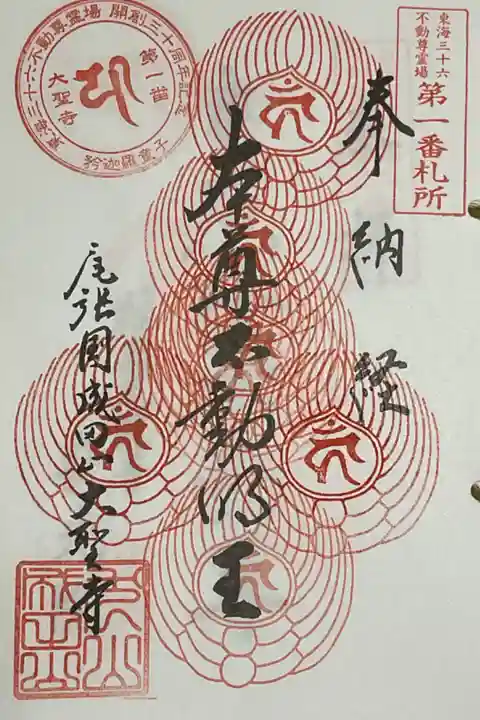 東海三十六
不動尊霊場
第一番札所
奉納経
本尊不動明王
東海三十六不動尊霊場 開創三十周年記念
第一番
大聖寺
矜迦羅童子
尾張國成田山大聖寺